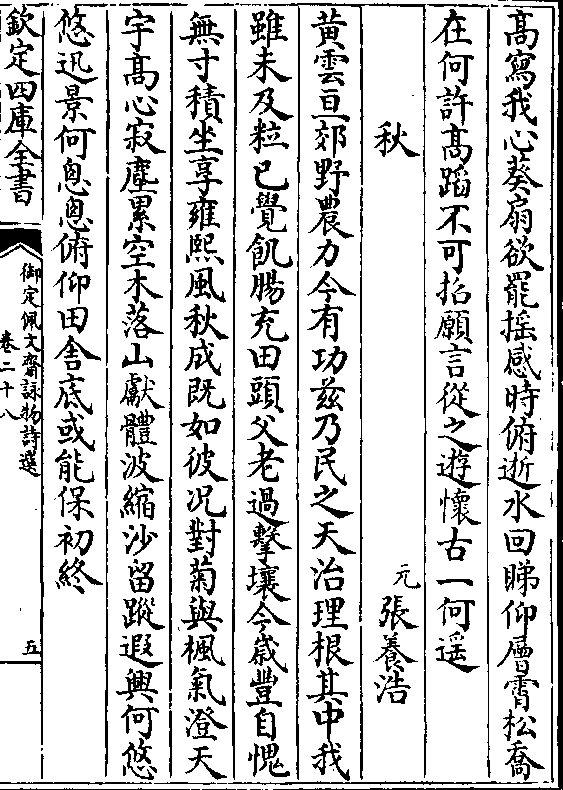 髙寫我心葵扇欲罷揺感時俯逝水回睇仰層霄松喬
在何許髙蹈不可招願言從之遊懷古一何遥
秋
元張養浩
黄雲亘郊野農力今有功兹乃民之天治理根其中我
雖未及粒已覺飢腸充田頭父老過擊壤今歲豐自愧
無寸積坐享雍熙風秋成既如彼况對菊與楓氣澄天
宇髙心寂塵累空木落山獻體波縮沙留蹤遐興何悠
悠迅景何悤悤俯仰田舍底或能保初終
欽定四庫全書
御定佩文齋詠物詩選
卷二十八
五